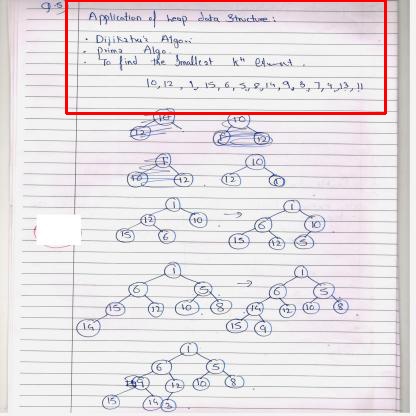 Q.5
Application of heap data structure:
• Dijikatra's Algo.:
• prims Algo.
• To find the smallest kth element.
10, 12, 1, 15, 6, 5, 8, 14, 9, 3, 7, 4, 13, 11
10
12 1 12
1 10
10 12 12 1
1 → 1
12 10 6 10
15 6 15 12 5
1 → 1
6 5 6 5
15 12 10 8 14 12 10 8
14 15 9
1
6 5
9 12 10 8
15 14 3